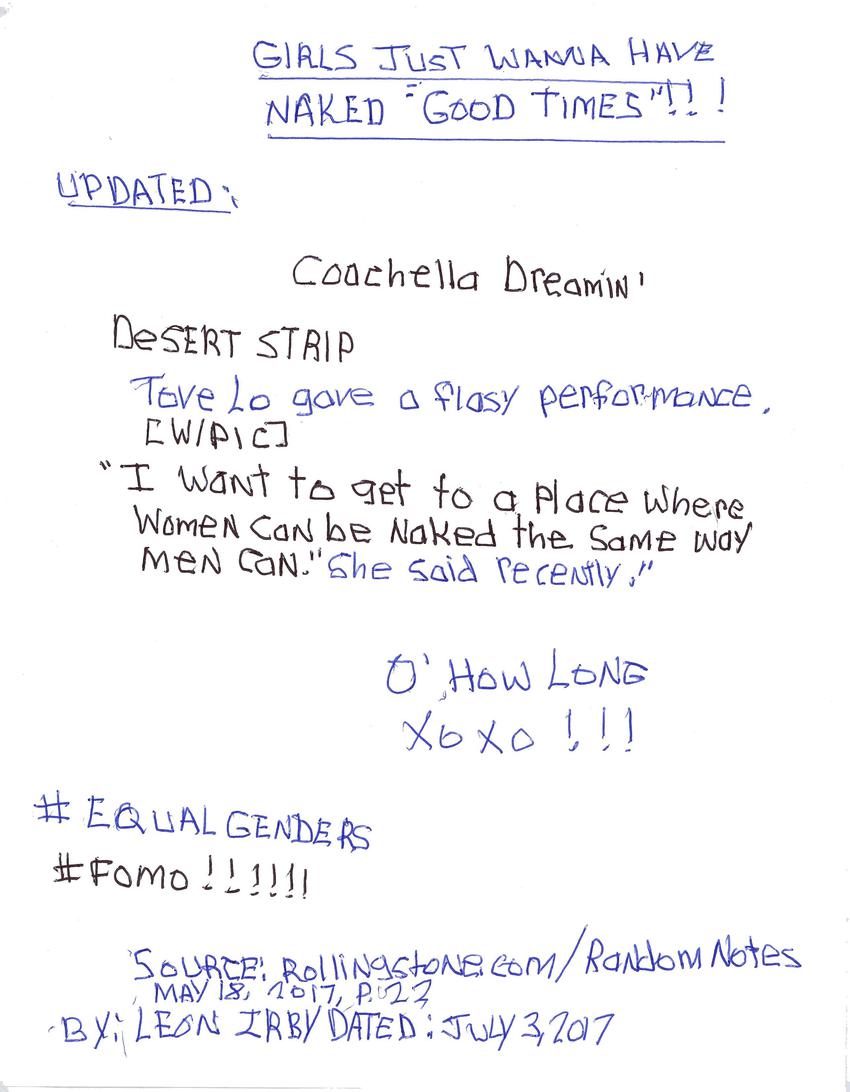 GIRLS JUST WANNA HAVE
NAKED "GOOD TIMES"!! !
UPDATED:
Coachella Dreamin'
DeSERT STRIP
Tove Lo gave a flasy performance.
[W/PIC]
"I want to get to a Place where
Women Can be Naked the Same way
MEN CAN." She said recently."
O' HOW LONG
XoXo !!!
# EQUAL GENDERS
#Fomo !!!!!!
SOURCE: Rollingstone.com/Random Notes
MAY 18, 2017, P. 22
BY: LEON IRBY DATED: JULY 3, 2017